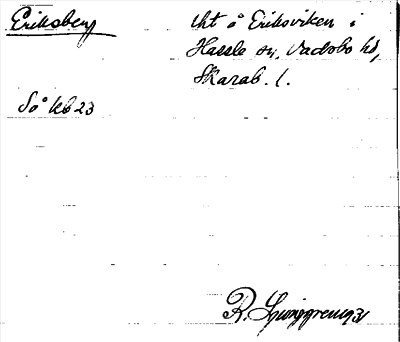 Eriksberg
tht å Eriksviken i
Hassle sn, Vadsbo hd,
Skarab. l.
So° kb 23
R. Ljunggren 1931